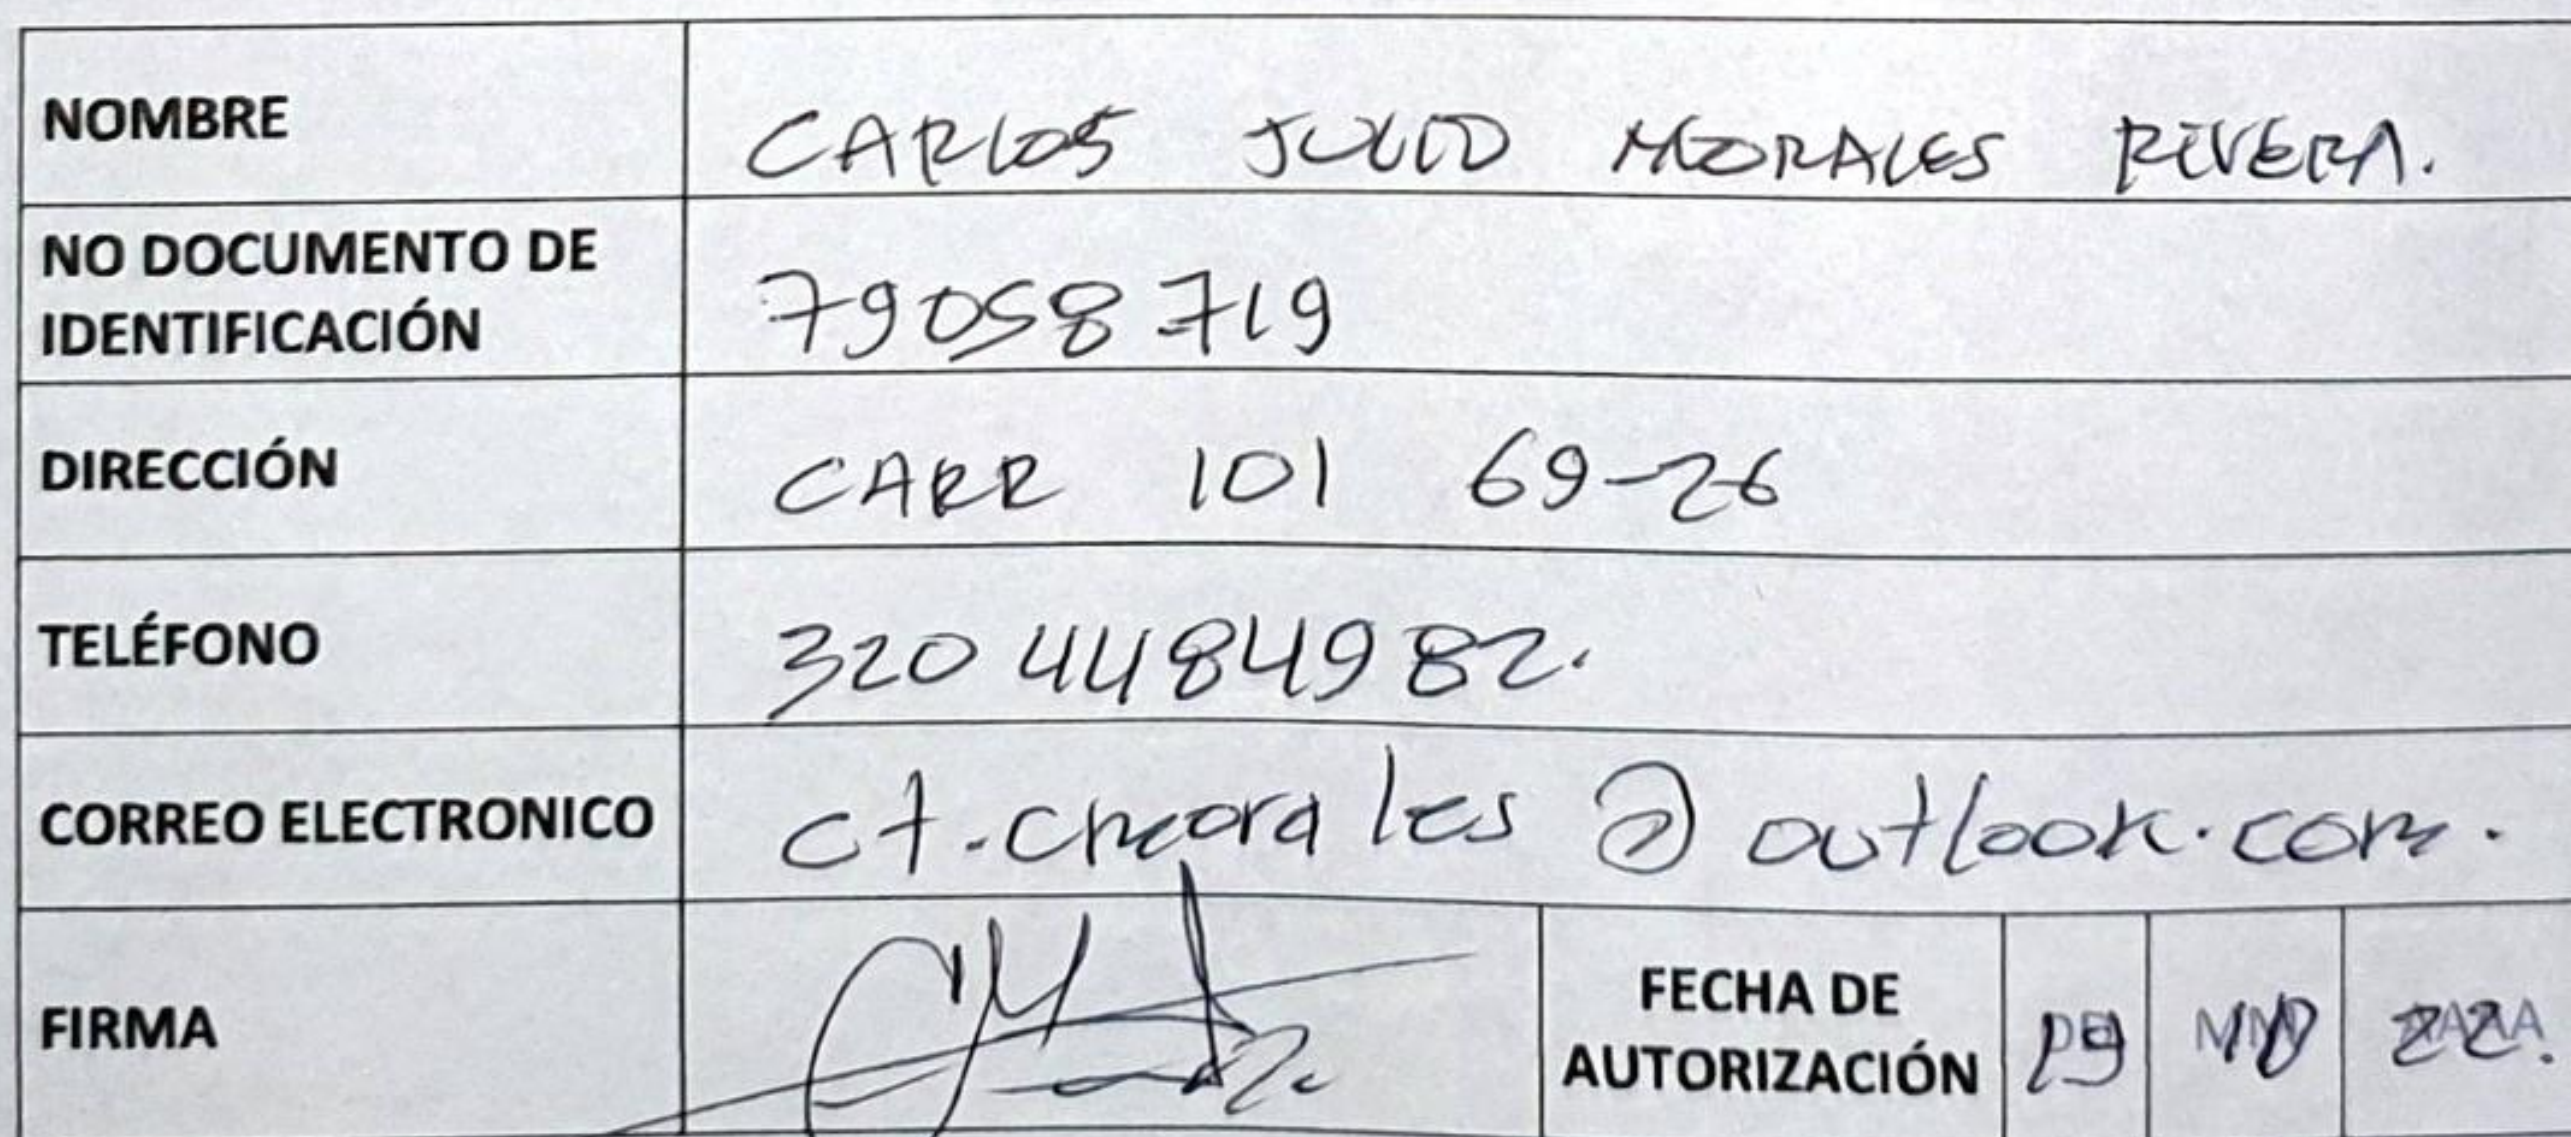 NOMBRE CARLOS JULIO MORALES RIVERA.
NO DOCUMENTO DE
IDENTIFICACIÓN 79058719
DIRECCIÓN CARR 101 69-26
TELÉFONO 320 4484982.
CORREO ELECTRONICO ct.cmorales@outlook.com.
FIRMA FECHA DE
AUTORIZACIÓN 19 10 22.